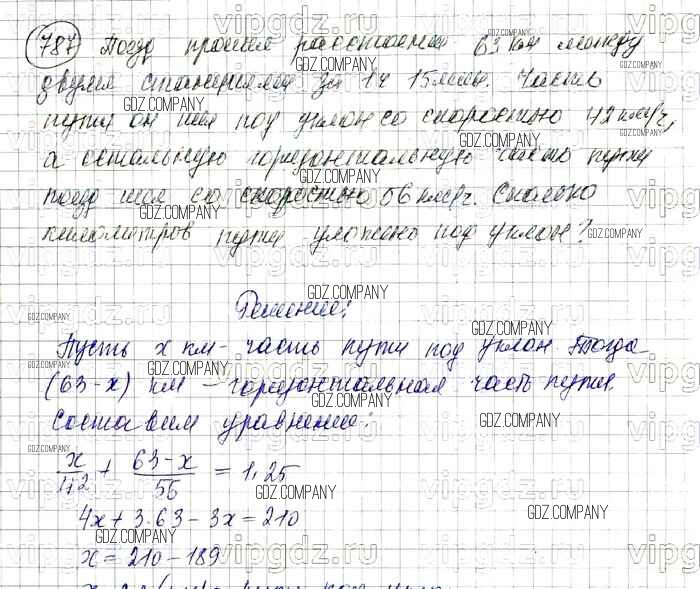 787 Поезд прошел расстояние 63 км между
двумя станциями за 1ч 15мин. Часть
пути он шел под уклон со скоростью 42 км/ч,
а остальную горизонтальную часть пути
поезд шел со скоростью 56 км/ч. Сколько
километров пути уложено под уклон?
Решение:
Пусть x км - часть пути под уклон Тогда
(63-x) км - горизонтальная часть пути.
Составим уравнение:
x/42 + (63-x)/56 = 1,25
4x + 3·63 - 3x = 210
x = 210 - 189
vipgdz.ru
GDZ.COMPANY